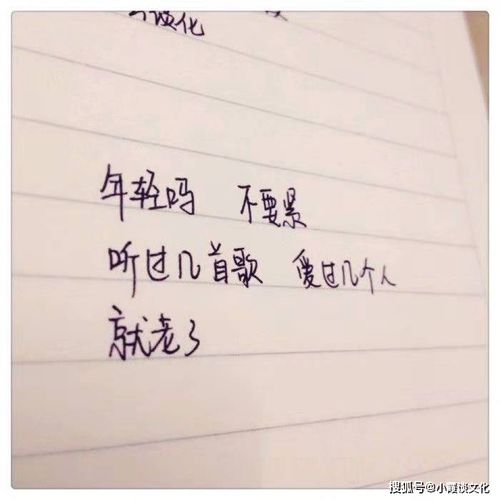 年轻吗 不要景
听过几首歌 爱过几个人
就老了
搜狐号@小霞谈文化